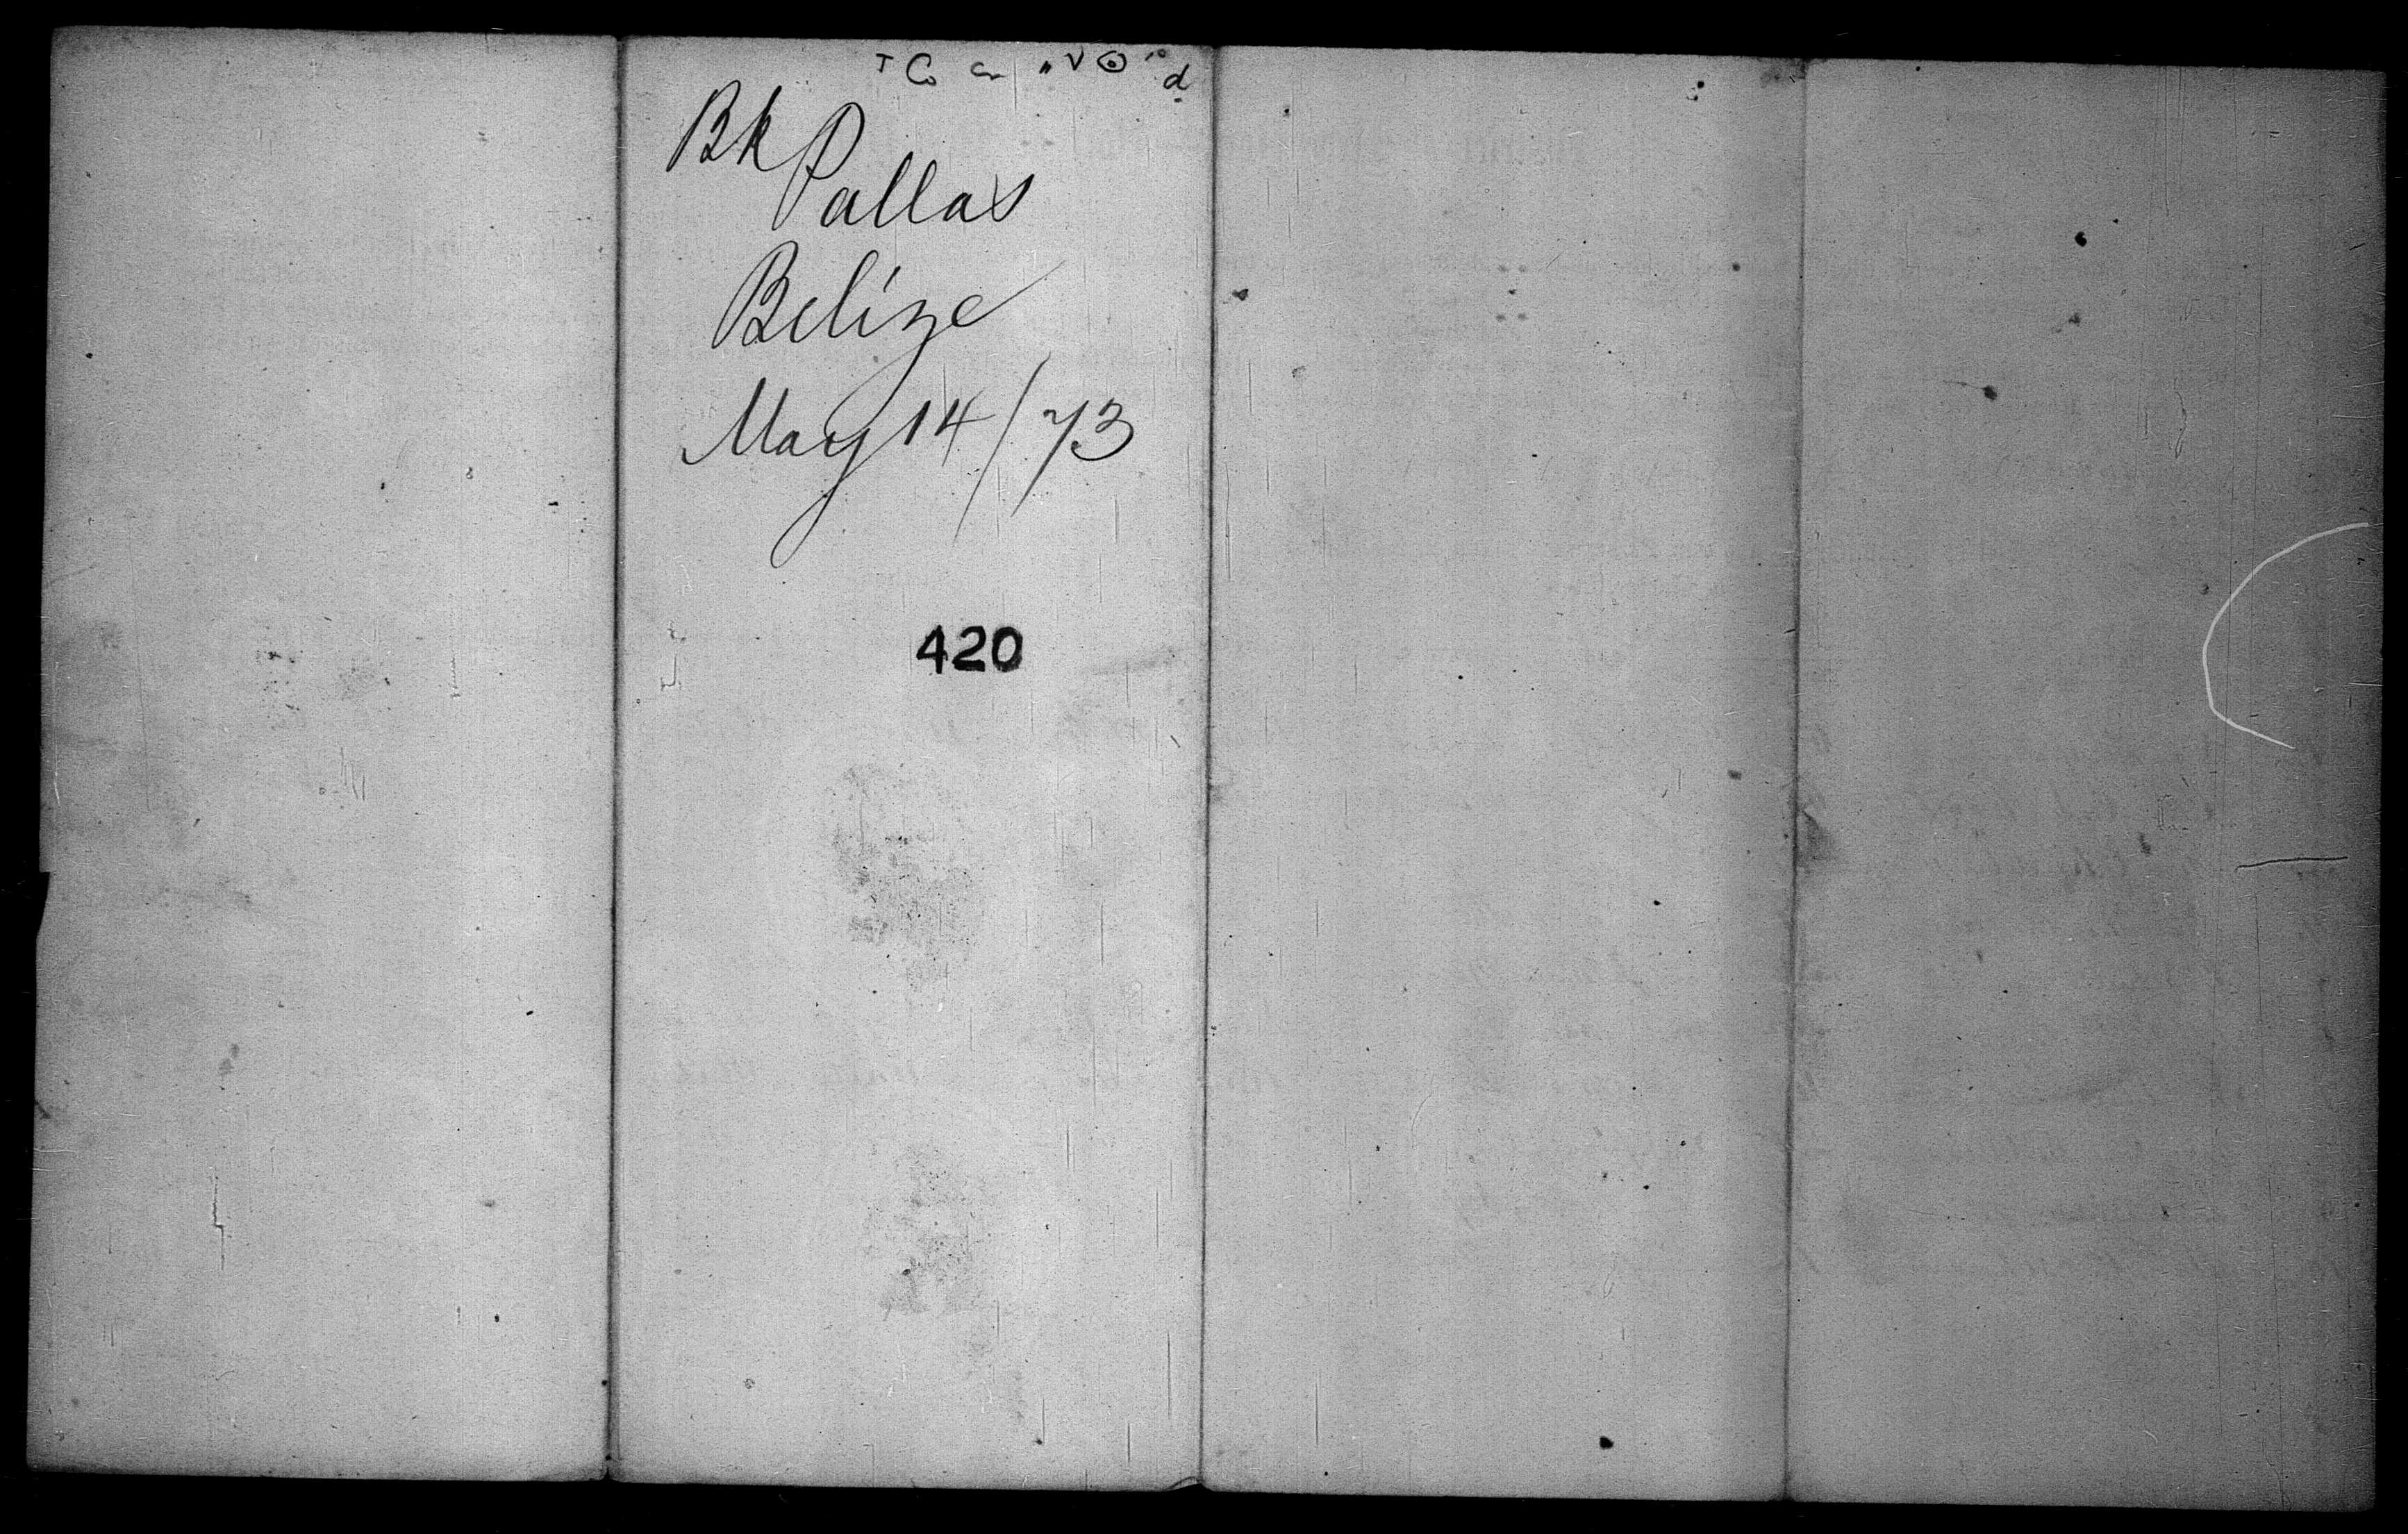 Bk Pallas
Belize
May 14/73
420